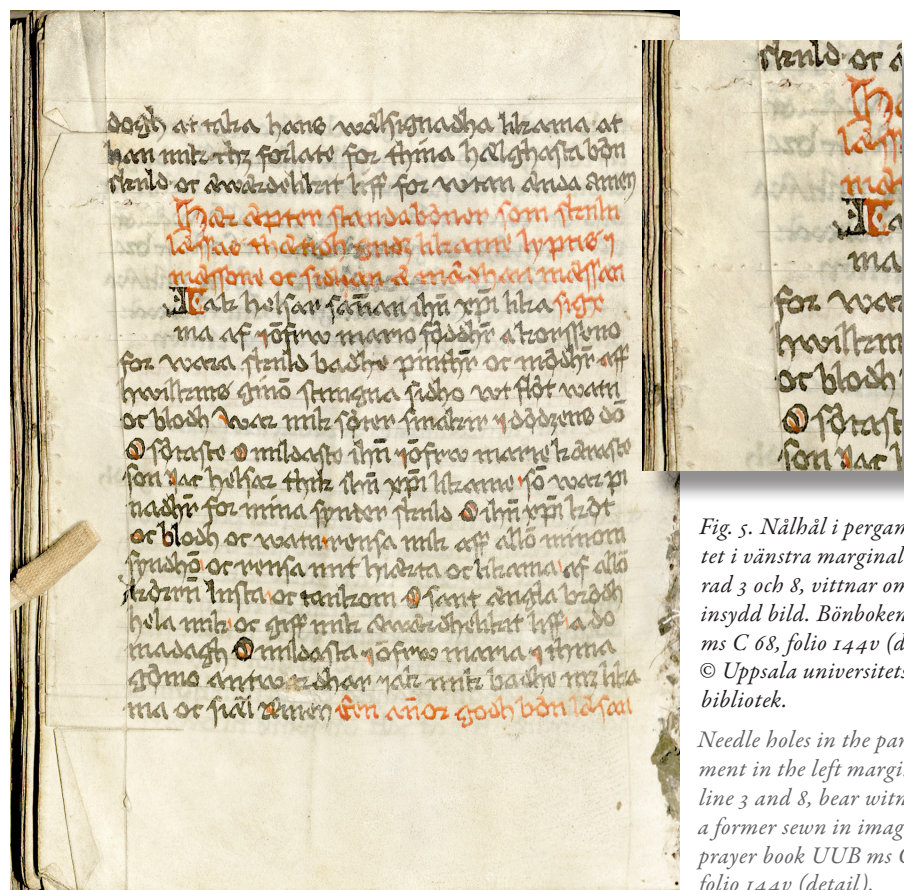 dogh at taka hans wælsignadha likama at
han mik thz forlate for thina hælghasta bøn
skuld oc æwærdelikit liff for wtan ænda amen
Hær æpter standa bøner som skulu
læssas
messone oc sidhan æ mædhan mæssan
Jak helsar sañan ihũ xp̃i lika
ma af iõfrw mario føddhr̃ a korsseno
for wara skuld badhe pinthr̃ oc mødhr̃ aff
hwilkens sidho wt fløt watn
oc blodh war mik søter
O søtaste O mildaste ihũ iõfrw marie kæraste
son Jac helsar thik ihũ xp̃i likame sõ war pi
nadhr̃ for mina synder skuld O ihũ xp̃i køt
oc blodh oc watn rensa mik aff allõ minom
syndhõ oc rensa mit hiærta oc likama af allõ
lusta oc tankom O sant ængla brødh
hela mik oc giff mik æwærdhelikit liff a do
madagh O mildasta iõfrw maria i thina
gømo antwardhar iak mik badhe mz lika
ma oc siæl Amen Ein añor godh bøn læsan
skuld oc æ
for war
hwilken
oc blodh
O søtast
son Jac h
Fig. 5. Nålhål i pergam
tet i vänstra marginal
rad 3 och 8, vittnar om
insydd bild. Bönboken
ms C 68, folio 144v (d
© Uppsala universitets
bibliotek.
Needle holes in the par
ment in the left margi
line 3 and 8, bear witn
a former sewn in imag
prayer book UUB ms C
folio 144v (detail).